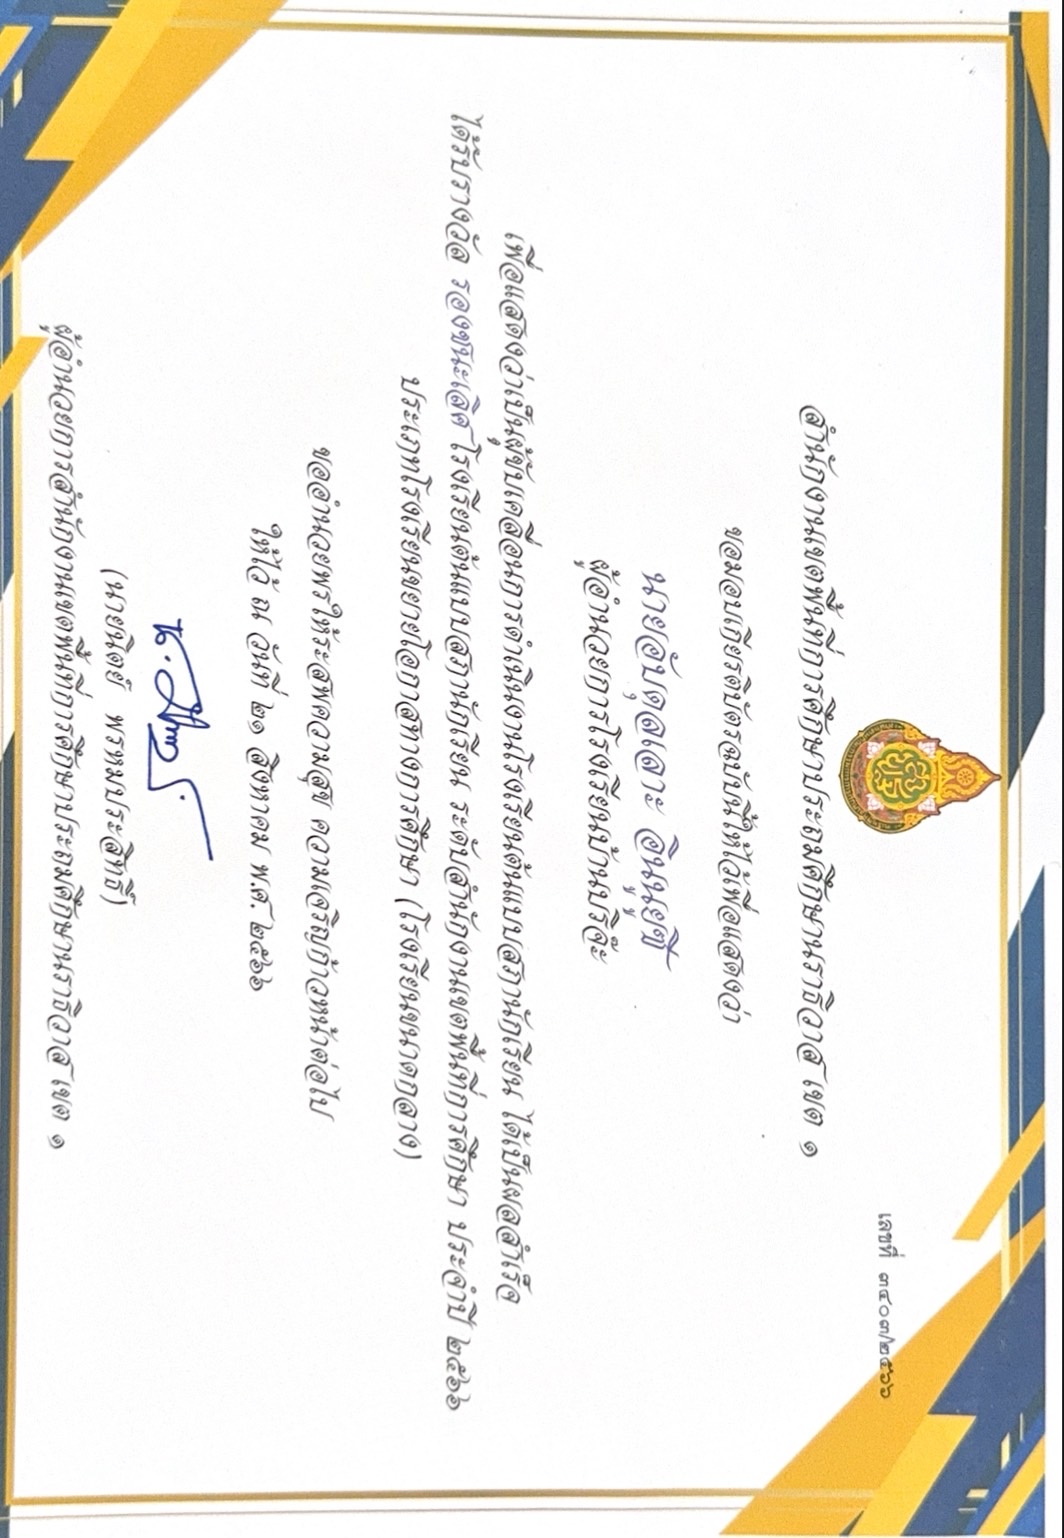 เลขที่ ๓๔๐๓/๒๕๖๖
สำนักงานเขตพื้นที่การศึกษาประถมศึกษานราธิวาส เขต ๑
ขอมอบเกียรติบัตรฉบับนี้ให้ไว้เพื่อแสดงว่า
นายอับดุลเลาะ อินนุยูซี
ผู้อำนวยการโรงเรียนบ้านบริจ๊ะ
เพื่อแสดงว่าเป็นผู้ขับเคลื่อนการดำเนินงานโรงเรียนต้นแบบสภานักเรียน ได้เป็นผลสำเร็จ
ได้รับรางวัล รองชนะเลิศ โรงเรียนต้นแบบสภานักเรียน ระดับสำนักงานเขตพื้นที่การศึกษา ประจำปี ๒๕๖๖
ประเภทโรงเรียนขยายโอกาสทางการศึกษา (โรงเรียนขนาดกลาง)
ขออำนวยพรให้ประสพความสุข ความเจริญก้าวหน้าต่อไป
ให้ไว้ ณ วันที่ ๒๑ สิงหาคม พ.ศ. ๒๕๖๖
(นายนิตย์ พรหมประสิทธิ์)
ผู้อำนวยการสำนักงานเขตพื้นที่การศึกษาประถมศึกษานราธิวาส เขต ๑